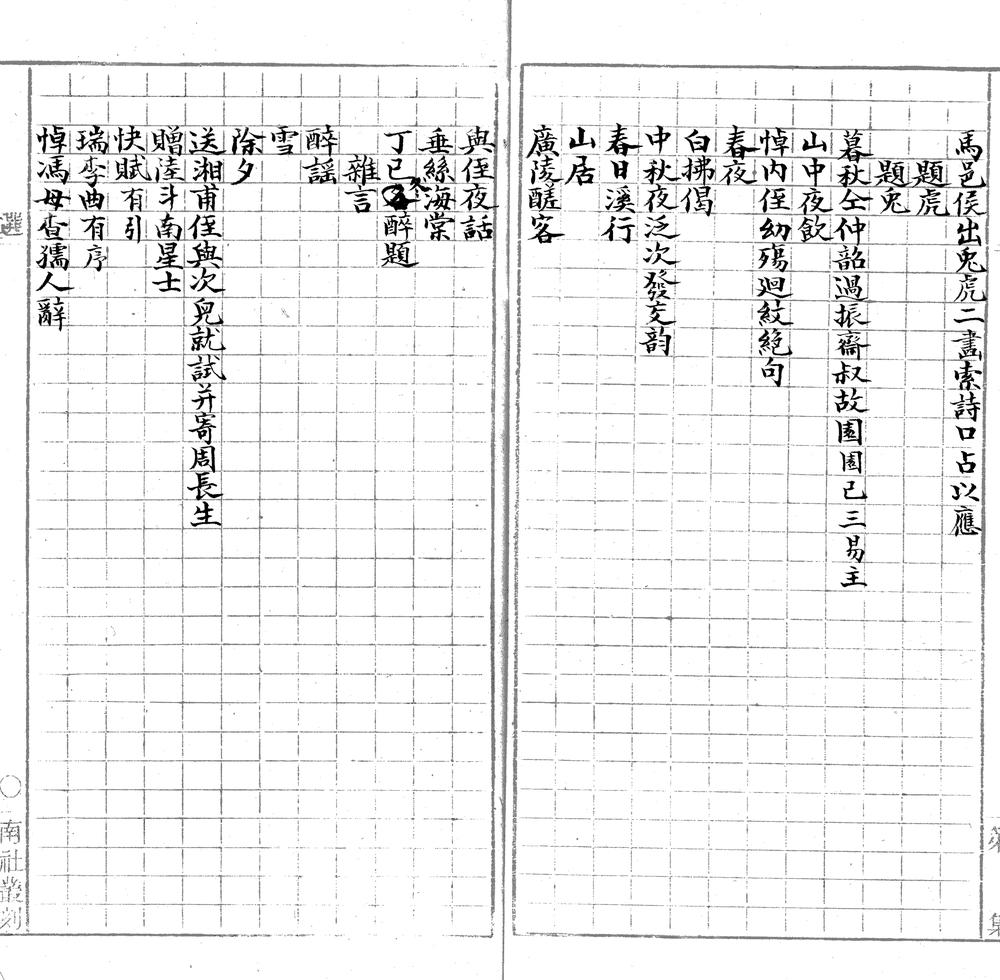 馬邑侯出兎虎二畫索詩口占以應
題虎
題兎
暮秋仝仲韶過振齋叔故園園已三易主
山中夜飲
悼内侄幼殤廻紋絶句
春夜
白拂偈
中秋夜泛次發交韵
春日溪行
山居
廣陵醝客
與侄夜話
垂絲海棠
丁巳冬醉題
雜言
醉謡
雪
除夕
送湘甫侄與次兒就試并寄周長生
贈陸斗南星士
快賦有引
瑞李曲有序
悼馮母查孺人辭
選
○
南社叢刻
集